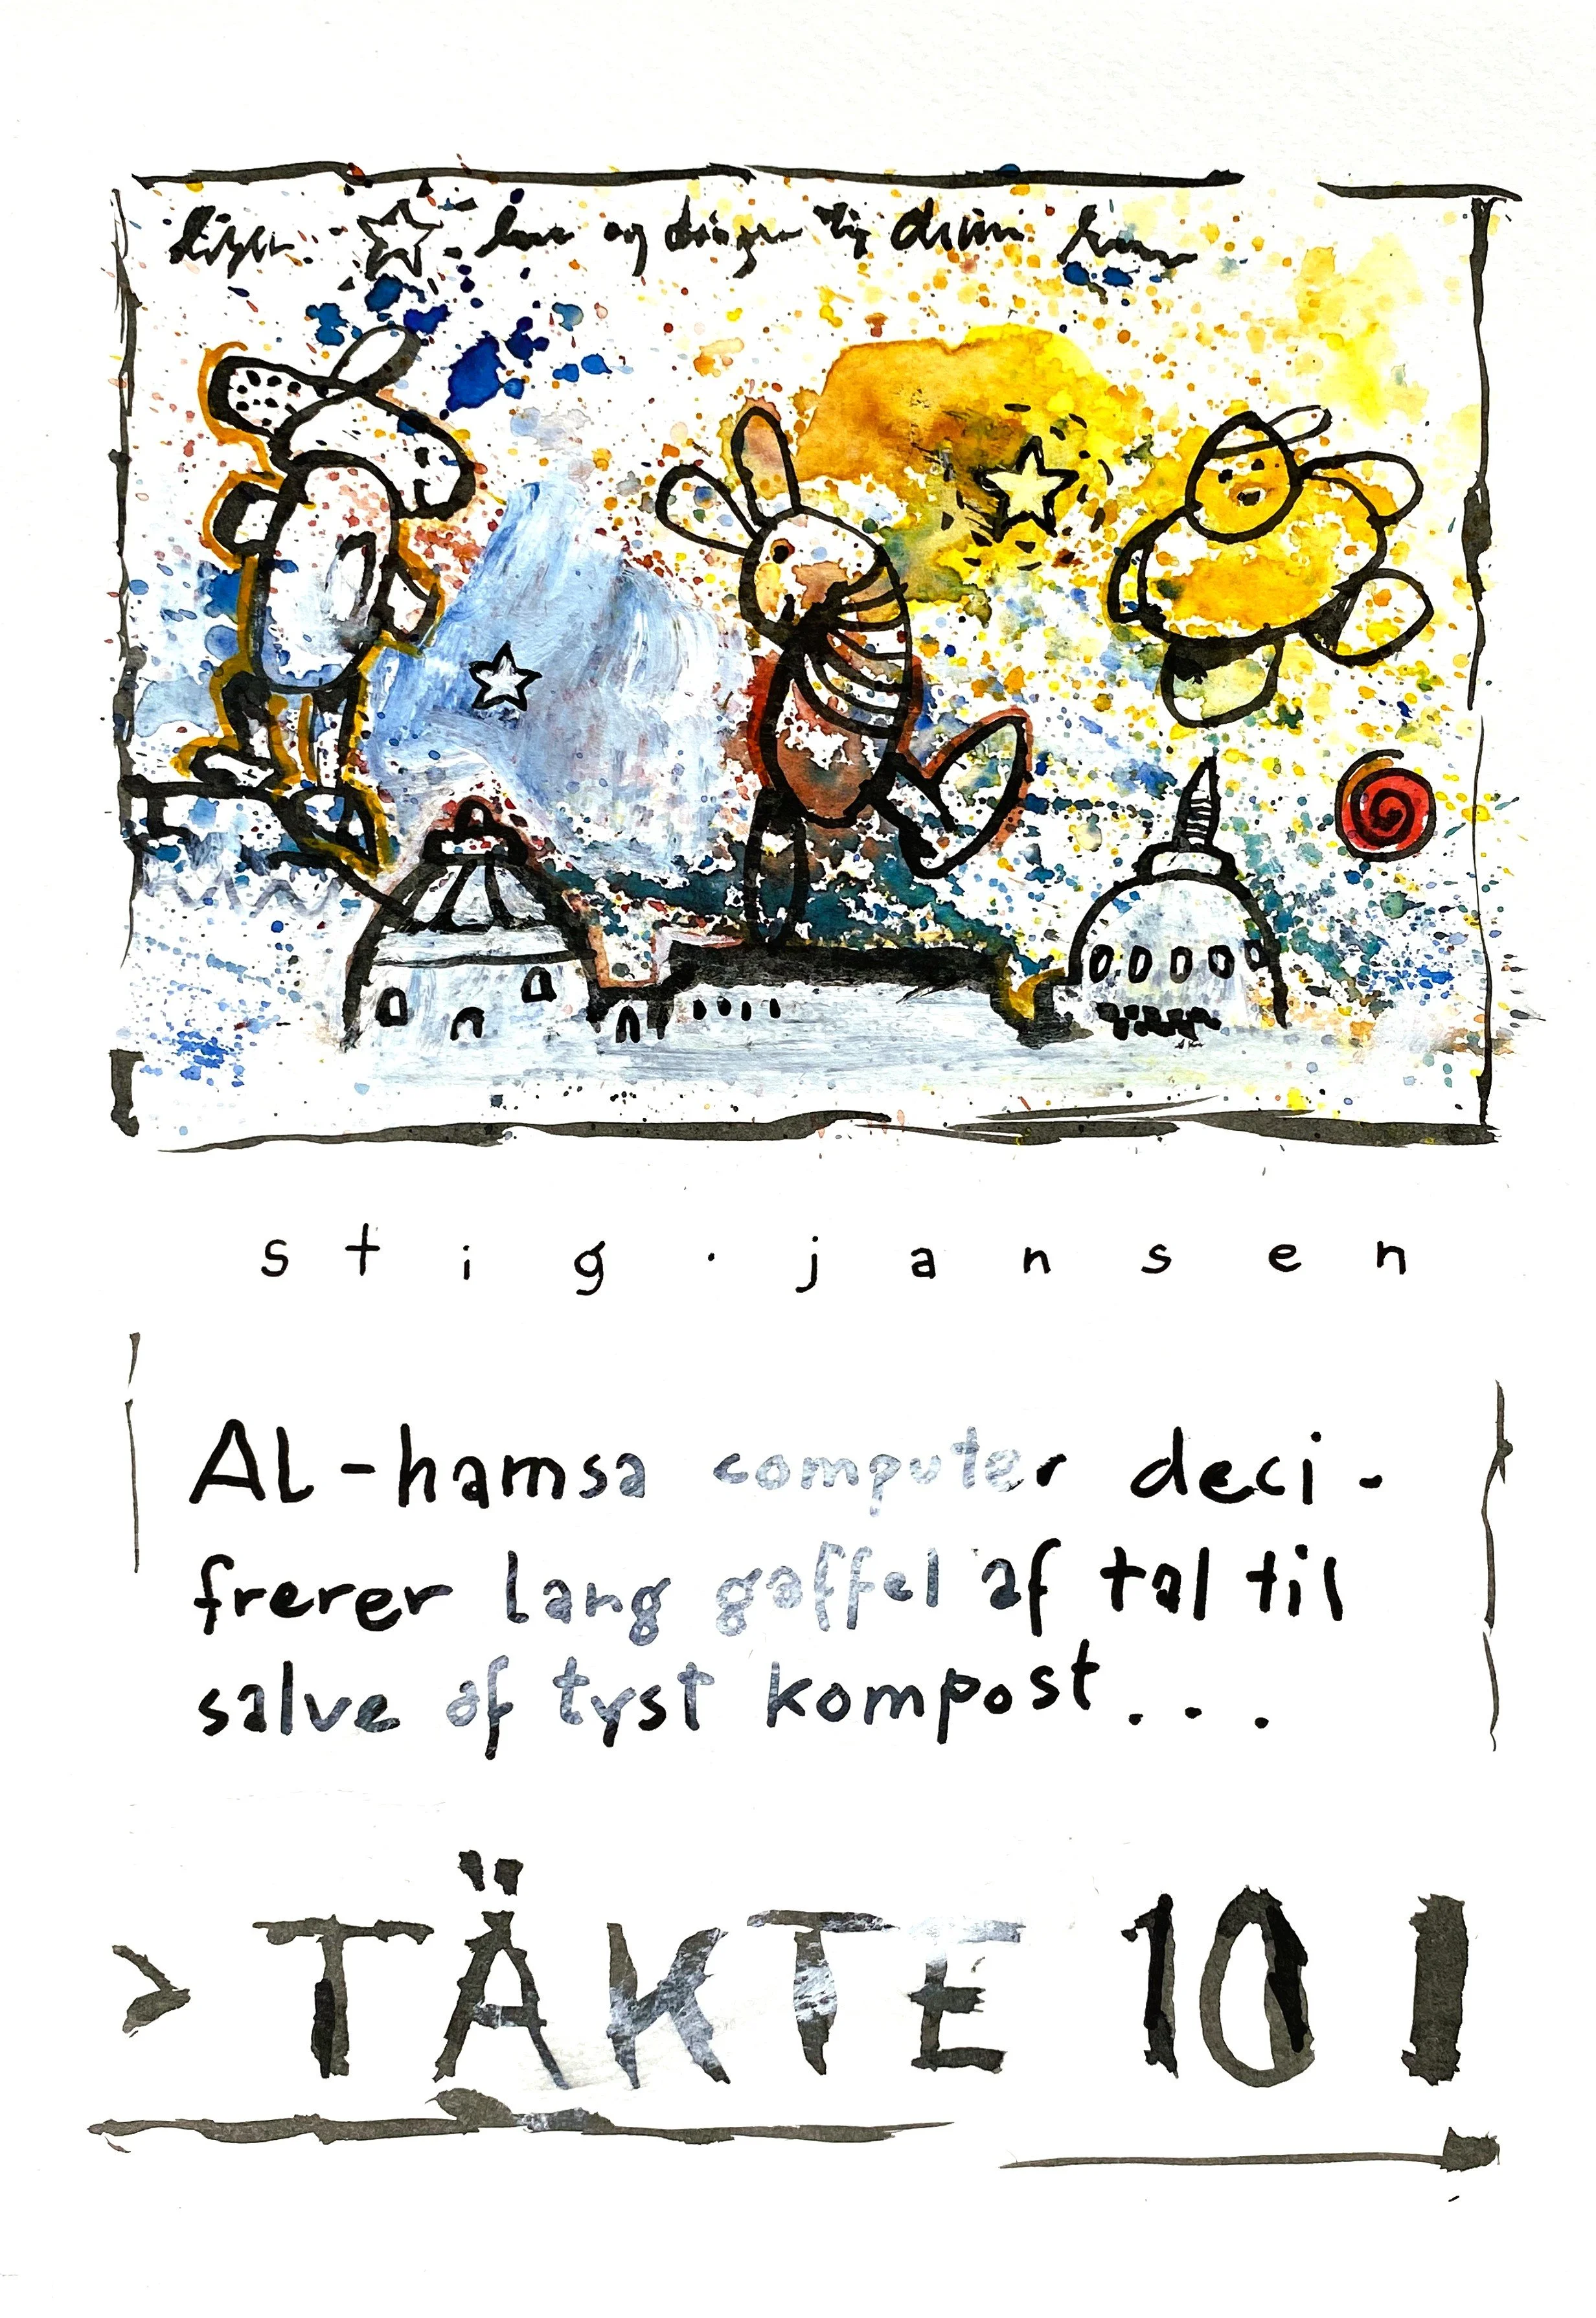 stig · jansen
Al-hamsa computer deci-
frerer lang gaffel af tal til
salve af tyst kompost...
> TÄKTE 10